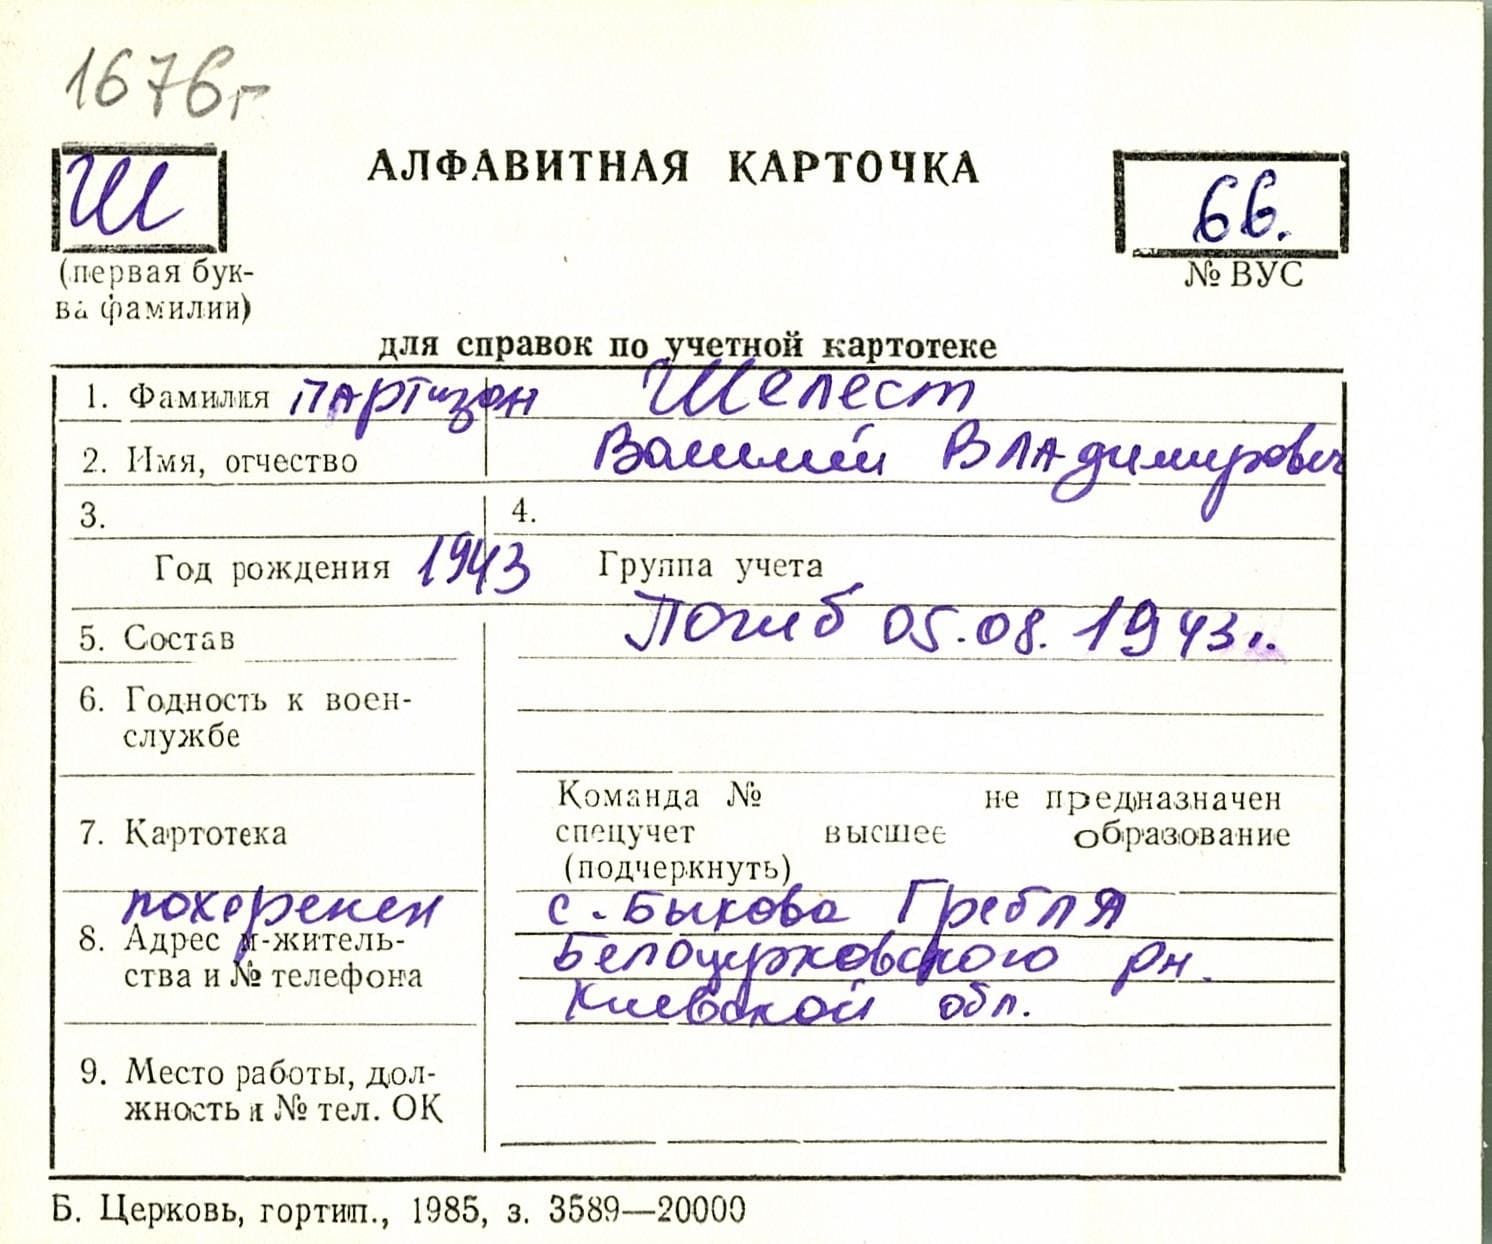 1676г
Ш
АЛФАВИТНАЯ КАРТОЧКА
66.
(первая бук-
ва фамилии)
№ ВУС
для справок по учетной картотеке
1. Фамилия партизан Шелест
2. Имя, отчество Василий Владимирович
3. 4.
Год рождения 1943 Группа учета
5. Состав Погиб 05.08.1943г.
6. Годность к воен-
службе
Команда № не предназначен
7. Картотека спецучет высшее образование
(подчеркнуть)
похоренен с. Быкова Гребля
8. Адрес м-житель- Белоцерковского рн.
ства и № телефона Киевской обл.
9. Место работы, дол-
жность и № тел. ОК
Б. Церковь, гортип., 1985, з. 3589—20000